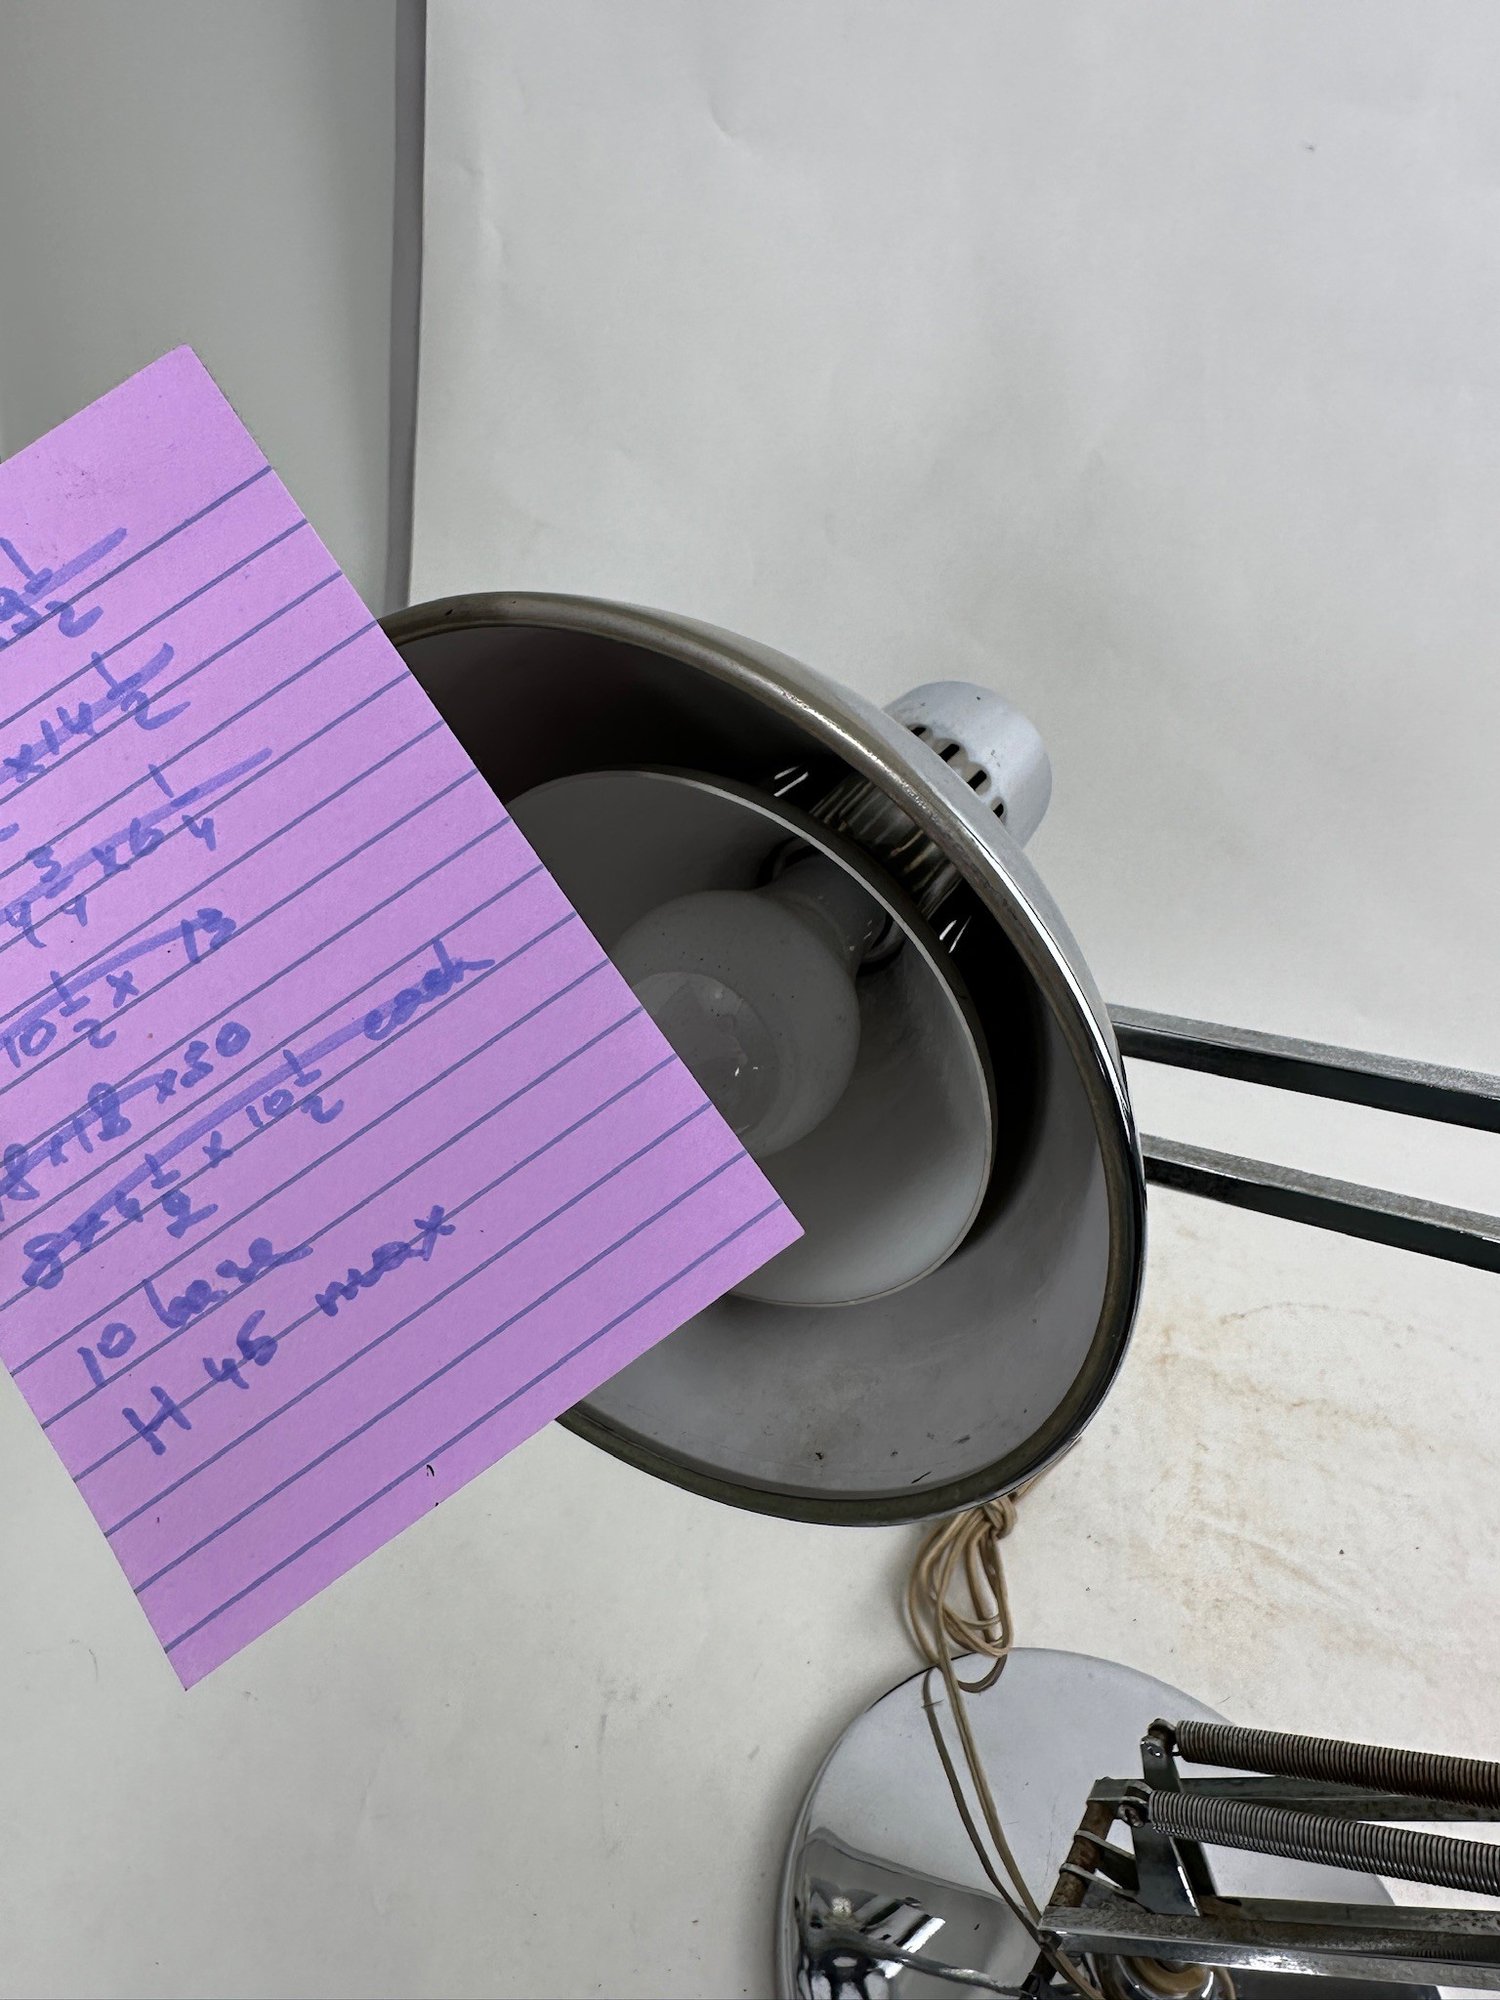 9 1/2
x 14 1/2
4 3/4 x 6 1/4
10 1/2 x 13
8 x 18 x 30
8 x 5 1/2 x 10 1/2 each
10 base
H 45 max